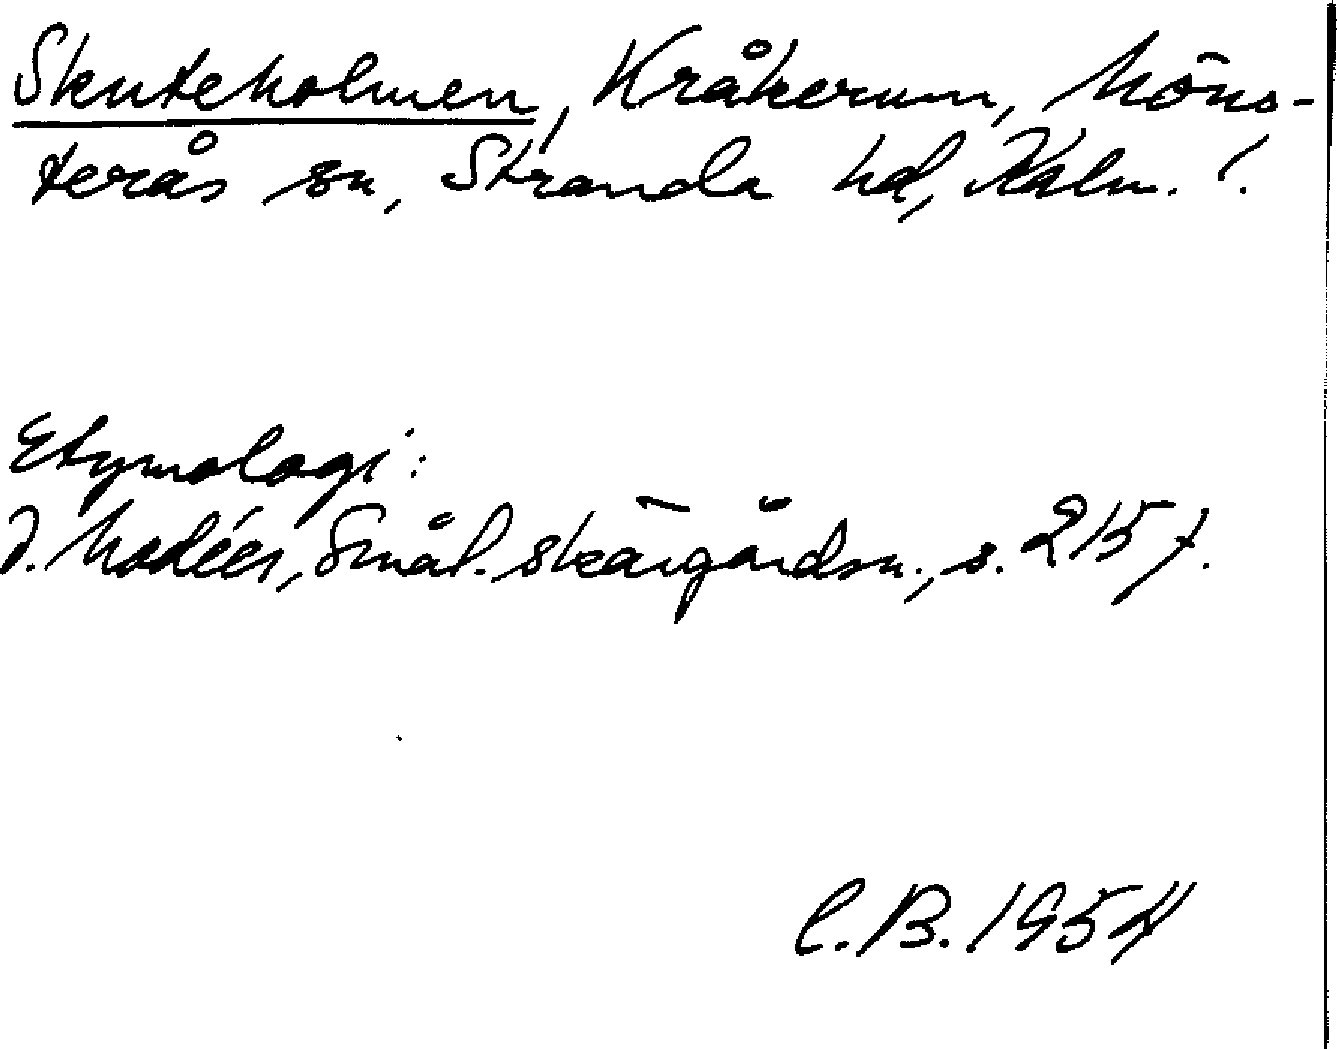 Skuteholmen, Kråkerum, Möns-
terås sn, Stranda hd, Kalm. l.
Etymologi:
I. Modéer, Smål. skärgårdsn., s. 215 f.
C.B. 1954